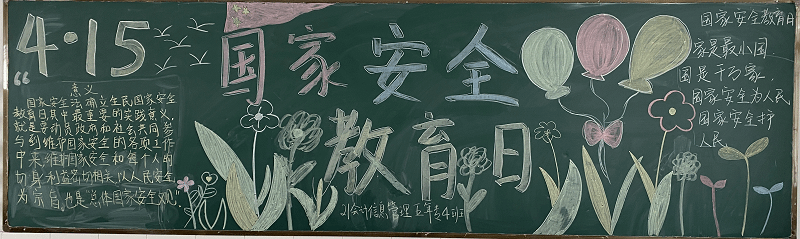 4·15
国家安全
教育日
意义
国家安全法确立全民国家安全
教育日其中最重要的实践意义,
就是要动员政府和社会共同参
与到维护国家安全的各项工作
中来,维护国家安全和每个人的
切身利益密切相关,以人民安全
为宗旨,也是总体国家安全观.
国家安全教育日
家是最小国
国是千万家.
国家安全为人民
国家安全护
人民
21会计信息管理五年专4班